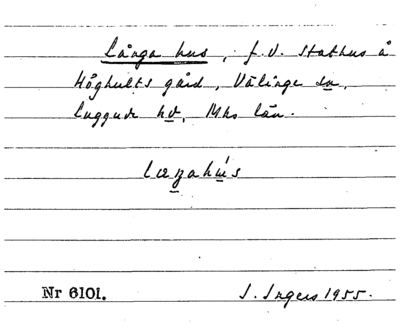 Långa hus, f.d. stathus å
Höghults gård, Välinge sn,
Luggude hd, Mhs län.
Nr 6101. J. Ingers 1955.